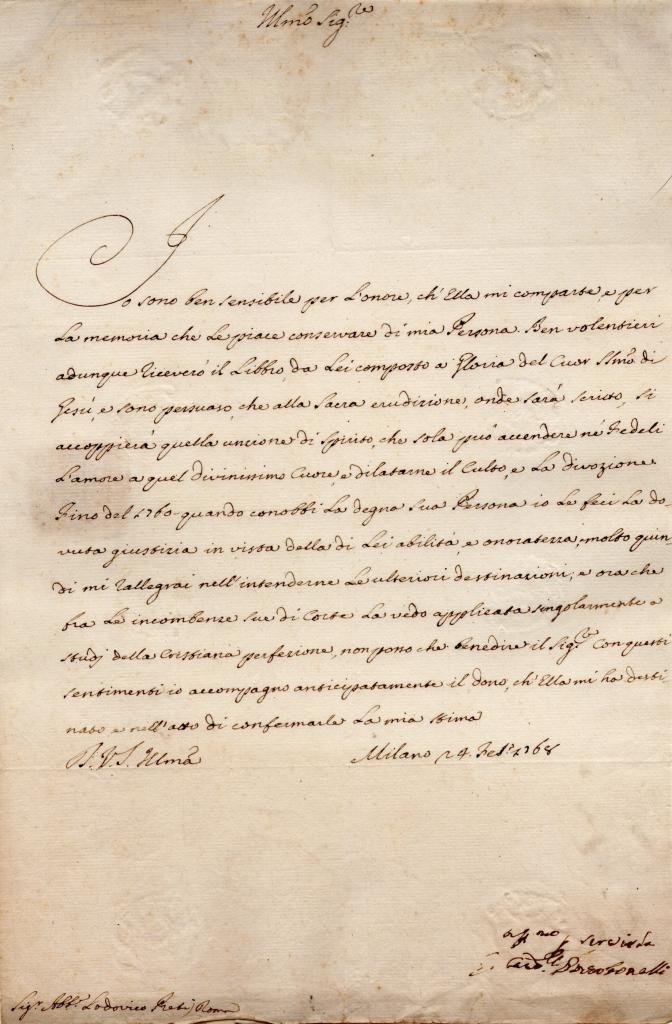 Illmo Sig.re
Io sono ben sensibile per l'onore, ch'Ella mi comparte, e per
la memoria che le piace conservare di mia Persona. Ben volentieri
adunque riceverò il Libbro, da Lei composto a Gloria del Cuor Ssmo di
Gesù, e sono persuaso, che alla Sacra erudizione, onde sarà scritto, si
accoppierà quella unzione di Spirito, che sola può accendere né Fedeli
L'amore a quel divinissimo Cuore, e dilatarne il Culto, e la divozione.
Fino del 1760 quando conobbi la degna sua Persona io le feci la do-
vuta giustizia in vista della di Lei abilità, e onoratezza, molto quin
di mi rallegrai nell'intenderne le ulteriori destinazioni; e ora che
fra le incombenze sue di Corte la vedo applicata singolarmente a
studj della Cristiana perfezione, non posso che benedire il Sig.re Con questi
sentimenti io accompagno anticipatamente il dono, ch'Ella mi ha desti
nato e nell'atto di confermarle la mia stima
D.V.S. Illma Milano 24. Feb.o 1768
aff.mo servir da
Card.le Pozzobonelli
Sig.r Abb.e Lodovico Preti Roma